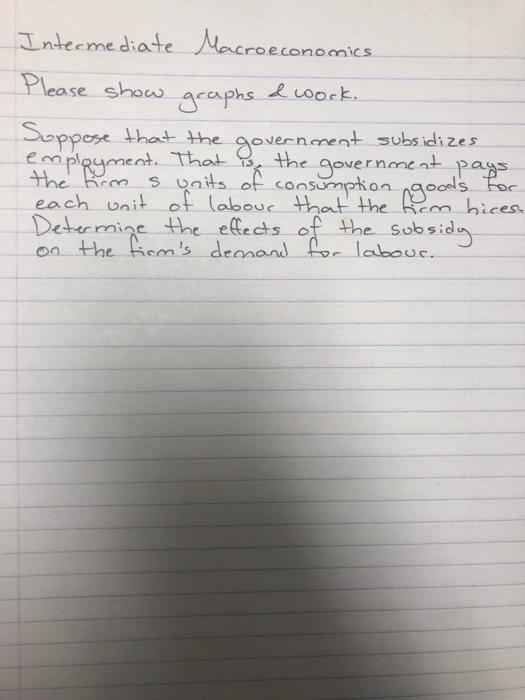 Intermediate Macroeconomics
Please show graphs & work.
Suppose that the government subsidizes
employment. That is, the government pays
the firm s units of consumption goods for
each unit of labour that the firm hires.
Determine the effects of the subsidy
on the firm's demand for labour.